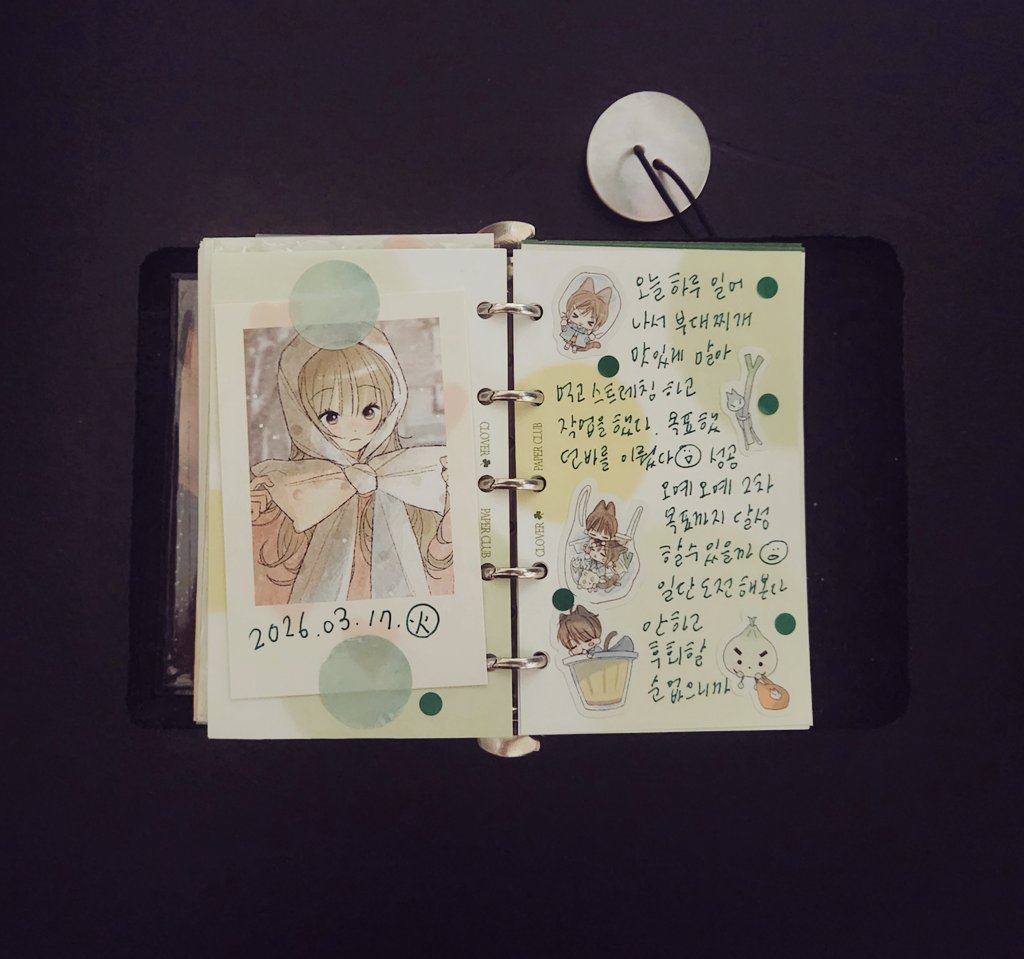 2026.03.17.火
CLOVER
PAPER CLUB
오늘 하루 일어
나서 부대찌개
맛있게 말아
먹고 스트레칭 하고
작업을 했다. 목표했
던바를 이뤘다 성공
오예 오예 2차
목표까지 달성
할수 있을까
일단 도전 해본다
안하고
후회할
순 없으니까
PAPER CLUB
CLOVER